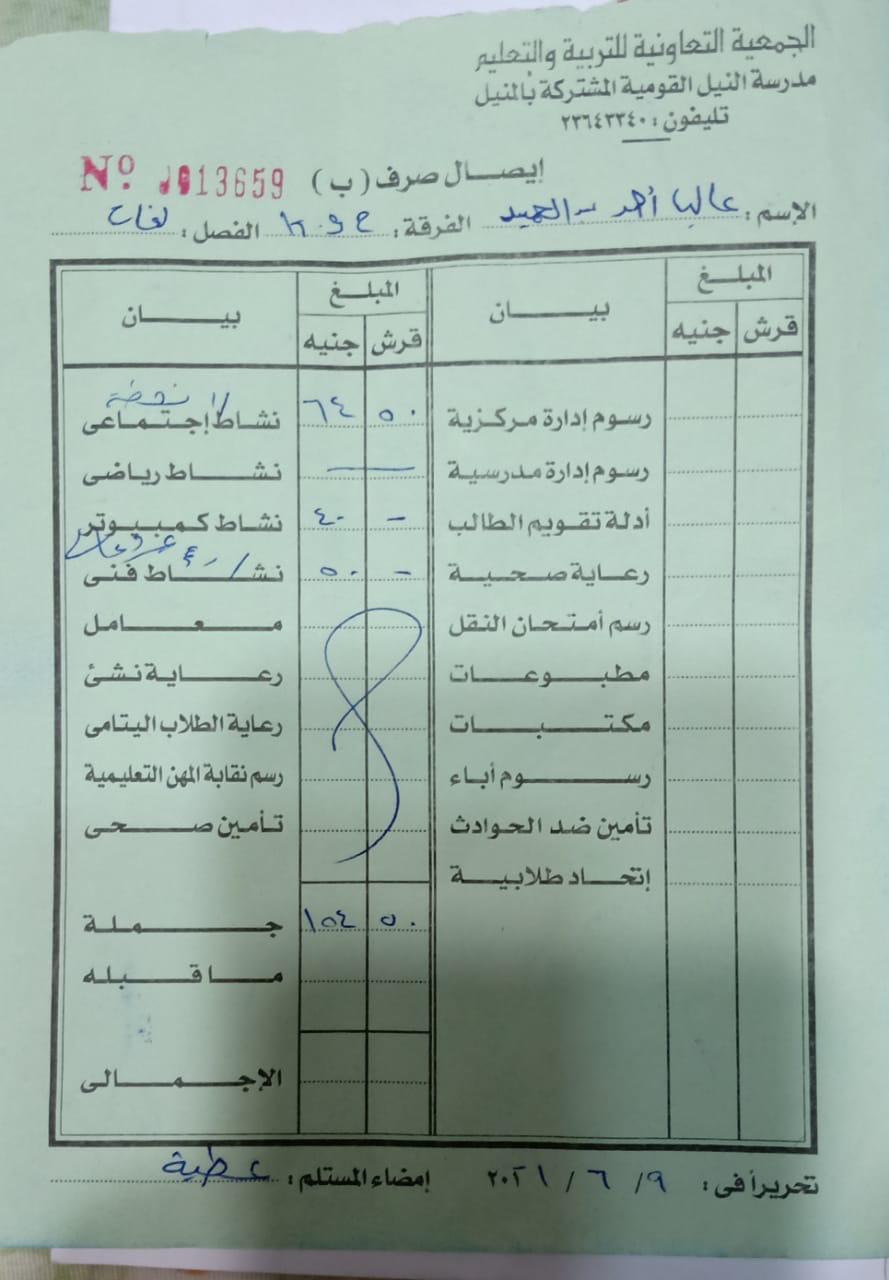 الجمعية التعاونية للتربية والتعليم
مدرسة النيل القومية المشتركة بالمنيل
تليفون : ٢٣٦٤٣٣٤٠
إيصال صرف (ب) Nº 013659
الإسم : عاليا أحمد الفرقة : الفصل : لغات
المبلغ بيان المبلغ بيان
قرش جنيه قرش جنيه
رسوم إدارة مركزية ٥٠ ٦٤ نشاط إجتماعى
رسوم إدارة مدرسية — نشاط رياضى
أدلة تقويم الطالب - ٤٠ نشاط كمبيوتر
رعاية صحية - ٥٠ نشاط فنى
رسم أمتحان النقل معامل
مطبوعات رعاية نشئ
مكتبات رعاية الطلاب اليتامى
رسوم أباء رسم نقابة المهن التعليمية
تأمين ضد الحوادث تأمين صحى
إتحاد طلابية
٥٠ ١٥٤ جملة
ما قبله
الإجمالى
تحريرا فى : ٩ / ٦ / ٢٠٢١ إمضاء المستلم : عطية